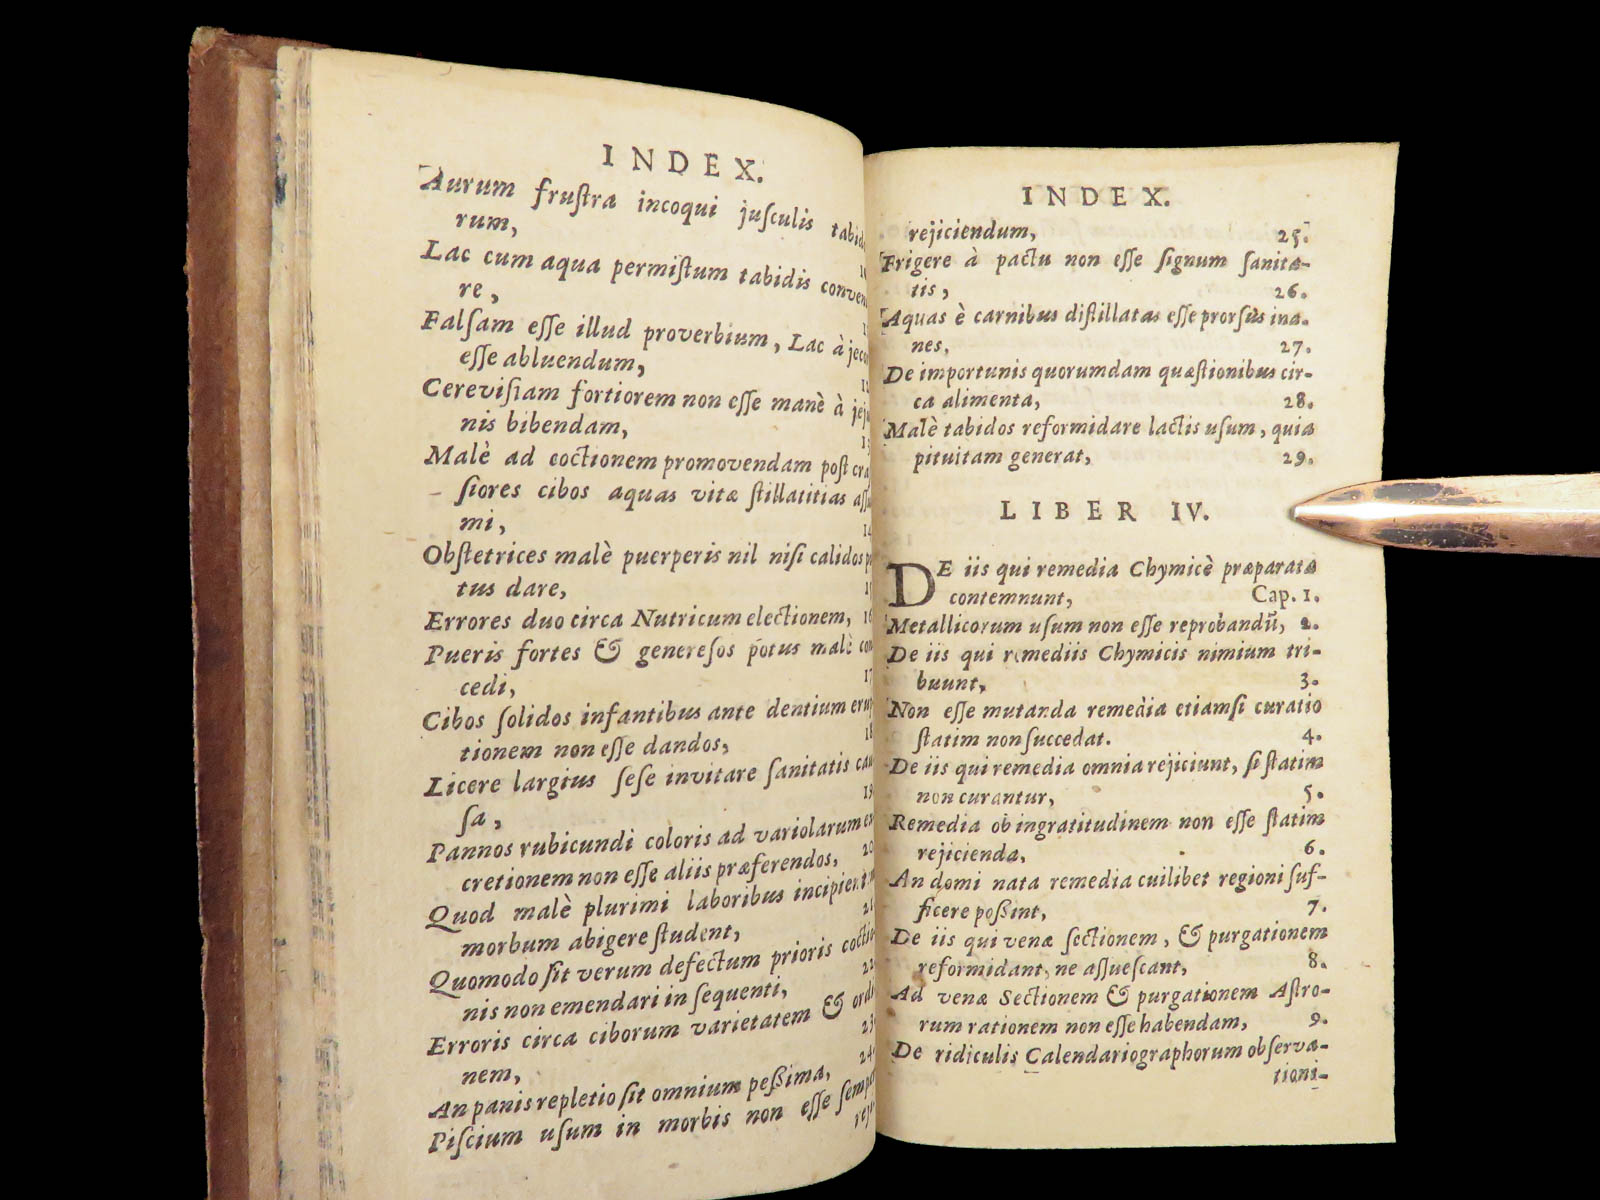 INDEX.
Aurum fruſtra incoqui juſculis
rum,
Lac cum aqua permiſtum tabidis
re,
Falſam eſſe illud proverbium, Lac à
eſſe abluendum,
Cereviſiam fortiorem non eſſe manè à
nis bibendam,
Malè ad coctionem promovendam poſt
ſiores cibos aquas vitæ ſtillatitias
mi, 14
Obſtetrices malè puerperis nil niſi calidos
tus dare,
Errores duo circa Nutricum electionem, 16
Pueris fortes & genereſos potus malè
cedi, 17
Cibos ſolidos infantibus ante dentium
tionem non eſſe dandos, 18
Licere largius ſeſe invitare ſanitatis
ſa, 19
Pannos rubicundi coloris ad variolarum
cretionem non eſſe aliis præferendos, 20
Quod malè plurimi laboribus
morbum abigere ſtudent, 21
Quomodo ſit verum defectum prioris
nis non emendari in ſequenti, 22
Erroris circa ciborum varietatem &
nem, 23
An panis repletio ſit omnium peſsima, 24.
Piſcium uſum in morbis non eſſe ſemper
INDEX.
rejiciendum, 25.
Frigere à pactu non eſſe ſignum ſanita-
tis, 26.
Aquas è carnibus diſtillatas eſſe prorſùs ina-
nes, 27.
De importunis quorumdam quæſtionibus cir-
ca alimenta, 28.
Malè tabidos reformidare lactis uſum, quia
pituitam generat, 29.
LIBER IV.
DE iis qui remedia Chymicè præparata
contemnunt, Cap. 1.
Metallicorum uſum non eſſe reprobandū, 2.
De iis qui remediis Chymicis nimium tri-
buunt, 3.
Non eſſe mutanda remedia etiamſi curatio
ſtatim non ſuccedat. 4.
De iis qui remedia omnia rejiciunt, ſi ſtatim
non curantur, 5.
Remedia ob ingratitudinem non eſſe ſtatim
rejicienda, 6.
An domi nata remedia cuilibet regioni ſuf-
ficere poſsint, 7.
De iis qui venæ ſectionem, & purgationem
reformidant, ne aſſueſcant, 8.
Ad venæ Sectionem & purgationem Aſtro-
rum rationem non eſſe habendam, 9.
De ridiculis Calendariographorum obſerva-
tioni-